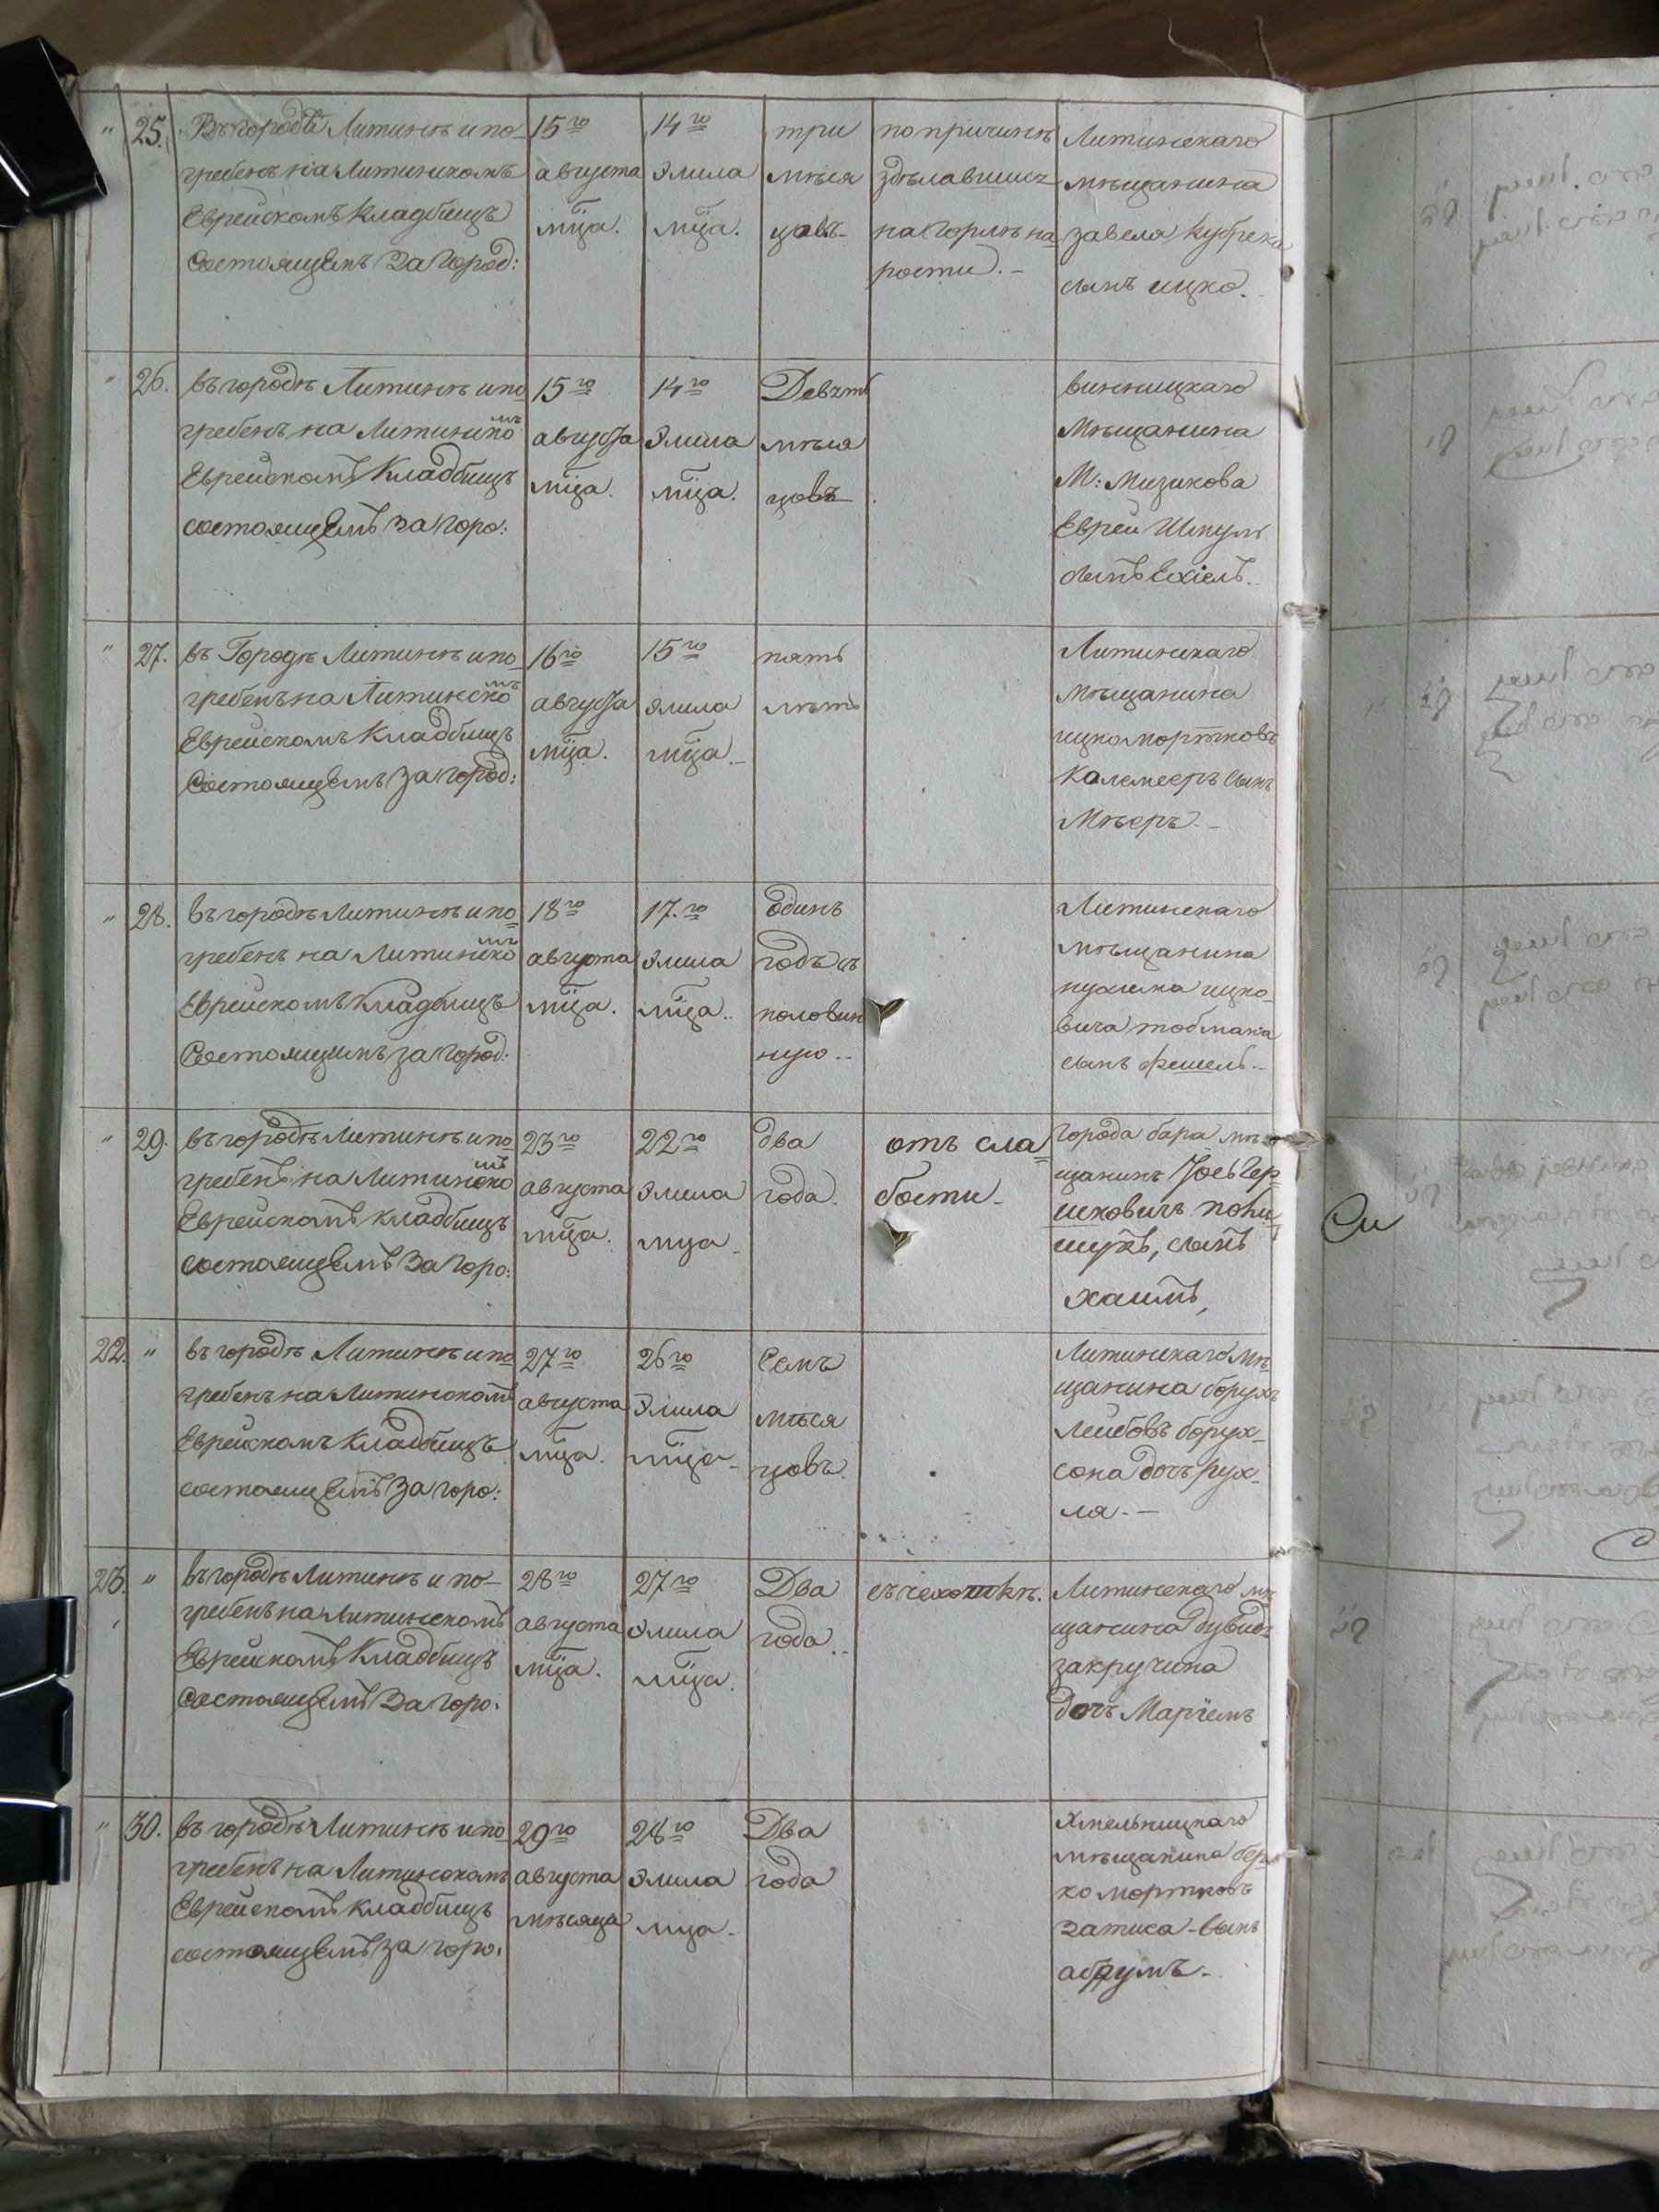 " 25. Въ городѣ Литинѣ и по=
гребенъ на Литинскомъ
Еврейскомъ Кладбищѣ
Состоящемъ За город:
15го
августа
мⷭ҇ца.
14го
Элила
мⷭ҇ца.
три
мѣся
цовъ-
по причинѣ
здѣлавших
на горлѣ на
рости. -
Литинскаго
мѣщанина
завеля
сынъ ицко.-
" 26. въ городѣ Литинѣ и по
гребенъ на Литинскомъ
Еврейскомъ Кладбищѣ
состоящемъ за горо:
15го
августа
мⷭ҇ца.
14го
Элила
мⷭ҇ца.
Девять
мѣся
цовъ
винницкаго
Мѣщанина
М: Мизикова
Еврей Шмуль
сынъ Ехіель..
" 27. въ Городѣ Литинѣ и по=
гребенъ на Литинскомъ
Еврейскомъ Кладбищѣ
Состоящемъ за город:
16го
августа
мⷭ҇ца.
15го
Элила
мⷭ҇ца.-
пять
лѣтъ
Литинскаго
мѣщанина
ицко мортковъ
сынъ
Мѣеръ.-
" 28. въ городѣ Литинѣ и по=
гребенъ на Литинско мъ
Еврейскомъ Кладбищѣ
Состоящемъ за город:
18го
августа
мⷭ҇ца.
17.го
Элила
мⷭ҇ца..
одинъ
годъ съ
половин
ною..
Литинскаго
мѣщанина
ицко-
вича
сынъ фишель.-
" 29. въ городѣ Литинѣ и по=
гребенъ на Литинско мъ
Еврейскомъ кладбищѣ
состоящемъ За горо:
23го
августа
мⷭ҇ца.
22го
Элила
мца-
два
года.
отъ сла=
бости-
города бара мѣ=
щанинъ Іось гер=
шковичъ
сынъ
хаимъ,
22. " въ городѣ Литинѣ и по=
гребенъ на Литинскомъ
Еврейскомъ Кладбищѣ
состоящемъ за горо:
27го
августа
мⷭ҇ца.
26го
Элила
мⷭ҇ца-
Семъ
мѣся
цовъ.
Литинскаго мѣ
щанина борухъ
Лейбовъ борух-
сона дочь рух-
ля.-
23. " въ городѣ Литинѣ и по-
гребенъ на Литинскомъ
Еврейскомъ Кладбищѣ
Состоящемъ За горо:
28го
августа
мⷭ҇ца.
27го
Элила
мⷭ҇ца.
Два
года..
съ чехоткѣ.
Литинскаго мѣ
щанина дувидъ
закручина
дочь Маріемъ
" 30. въ городѣ Литинѣ и по
гребенъ на Литинскомъ
Еврейскомъ кладбищѣ
состоящемъ за горо:
29го
августа
мѣсяца
28го
Элила
мца.
Два
года
Хмельницкаго
мѣщанина бер=
ко мортковъ
сынъ
абрумъ.-